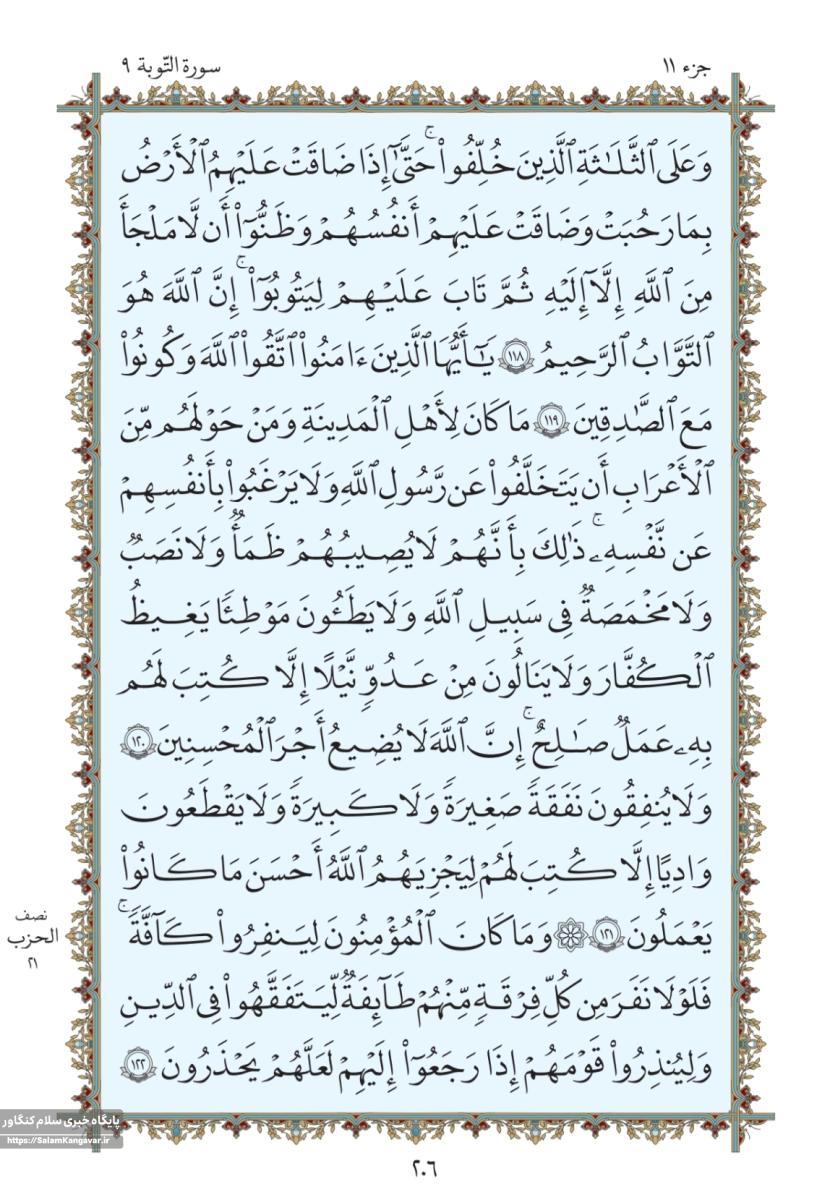 جزء ١١
سورة التّوبة ٩
وَعَلَى ٱلثَّلَـٰثَةِ ٱلَّذِينَ خُلِّفُوا۟ حَتَّىٰٓ إِذَا ضَاقَتْ عَلَيْهِمُ ٱلْأَرْضُ
بِمَا رَحُبَتْ وَضَاقَتْ عَلَيْهِمْ أَنفُسُهُمْ وَظَنُّوٓا۟ أَن لَّا مَلْجَأَ
مِنَ ٱللَّهِ إِلَّآ إِلَيْهِ ثُمَّ تَابَ عَلَيْهِمْ لِيَتُوبُوٓا۟ ۚ إِنَّ ٱللَّهَ هُوَ
ٱلتَّوَّابُ ٱلرَّحِيمُ ١١٨ يَـٰٓأَيُّهَا ٱلَّذِينَ ءَامَنُوا۟ ٱتَّقُوا۟ ٱللَّهَ وَكُونُوا۟
مَعَ ٱلصَّـٰدِقِينَ ١١٩ مَا كَانَ لِأَهْلِ ٱلْمَدِينَةِ وَمَنْ حَوْلَهُم مِّنَ
ٱلْأَعْرَابِ أَن يَتَخَلَّفُوا۟ عَن رَّسُولِ ٱللَّهِ وَلَا يَرْغَبُوا۟ بِأَنفُسِهِمْ
عَن نَّفْسِهِۦ ۚ ذَٰلِكَ بِأَنَّهُمْ لَا يُصِيبُهُمْ ظَمَأٌ وَلَا نَصَبٌ
وَلَا مَخْمَصَةٌ فِى سَبِيلِ ٱللَّهِ وَلَا يَطَـُٔونَ مَوْطِئًا يَغِيظُ
ٱلْكُفَّارَ وَلَا يَنَالُونَ مِنْ عَدُوٍّ نَّيْلًا إِلَّا كُتِبَ لَهُم
بِهِۦ عَمَلٌ صَـٰلِحٌ ۚ إِنَّ ٱللَّهَ لَا يُضِيعُ أَجْرَ ٱلْمُحْسِنِينَ ١٢٠
وَلَا يُنفِقُونَ نَفَقَةً صَغِيرَةً وَلَا كَبِيرَةً وَلَا يَقْطَعُونَ
وَادِيًا إِلَّا كُتِبَ لَهُمْ لِيَجْزِيَهُمُ ٱللَّهُ أَحْسَنَ مَا كَانُوا۟
يَعْمَلُونَ ١٢١ ۞ وَمَا كَانَ ٱلْمُؤْمِنُونَ لِيَنفِرُوا۟ كَآفَّةً ۚ
نصف
الحزب
٢١
فَلَوْلَا نَفَرَ مِن كُلِّ فِرْقَةٍ مِّنْهُمْ طَآئِفَةٌ لِّيَتَفَقَّهُوا۟ فِى ٱلدِّينِ
وَلِيُنذِرُوا۟ قَوْمَهُمْ إِذَا رَجَعُوٓا۟ إِلَيْهِمْ لَعَلَّهُمْ يَحْذَرُونَ ١٢٢
پایگاه خبری سلام کنگاور
https://SalamKangavar.ir
٢٠٦